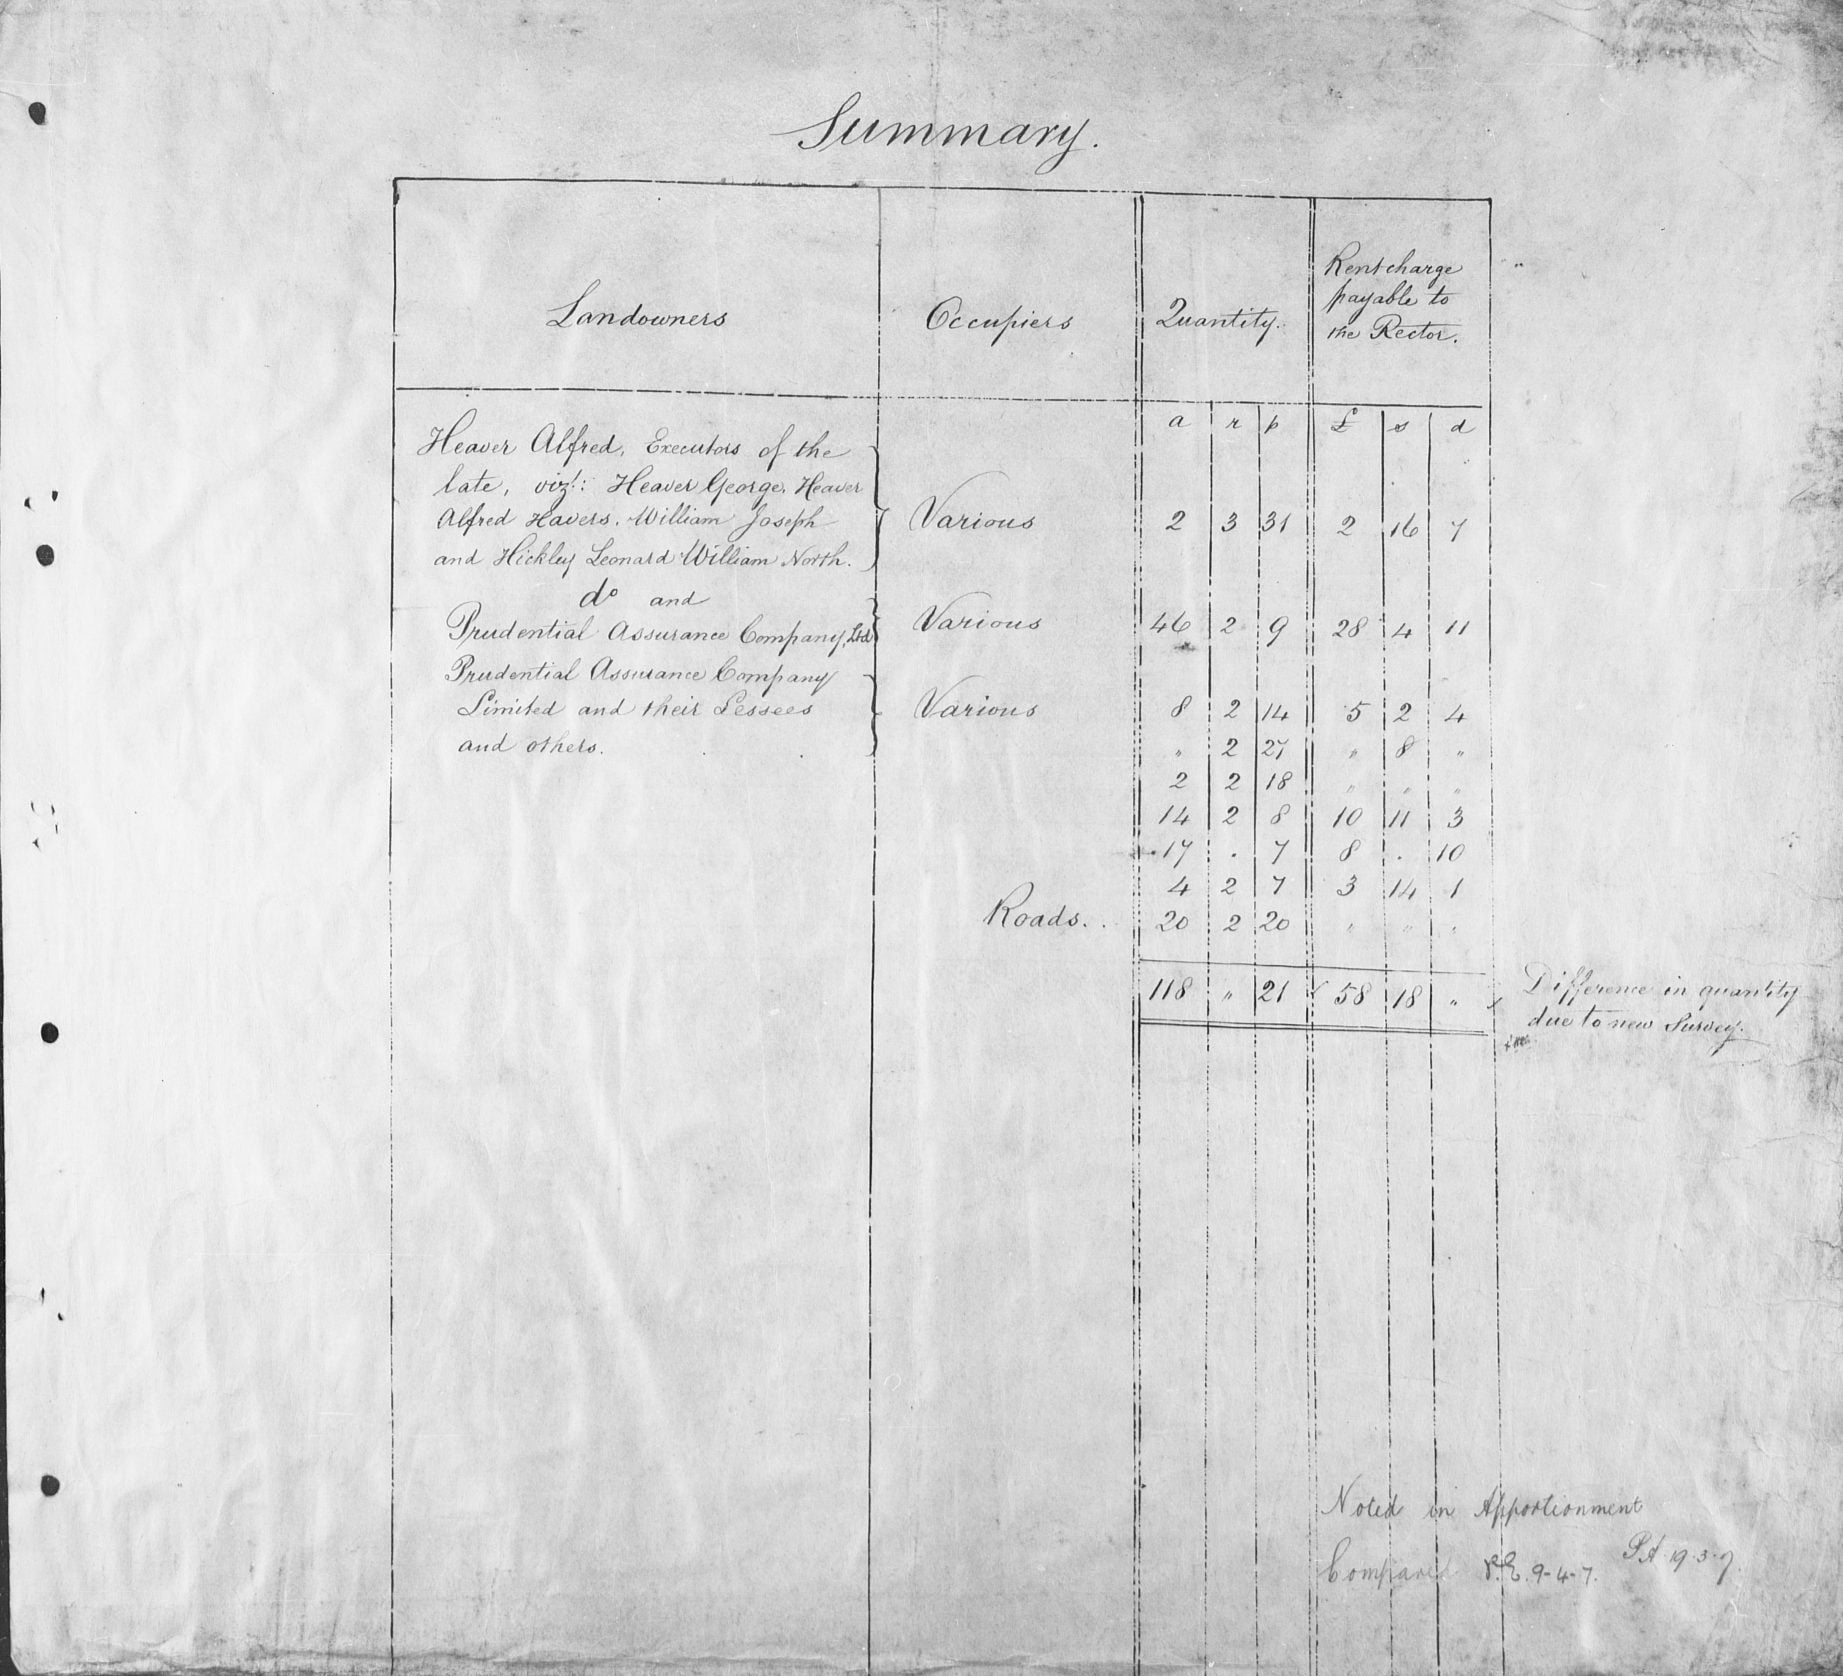 Summary.
Landowners Occupiers Quantity. Rentcharge
payable to
the Rector.
a r p £ s d
Heaver Alfred, Executors of the
late, vizt: Heaver George, Heaver
Alfred Havers, William Joseph Various 2 3 31 2 16 7
and Hickley Leonard William North.
do and
Prudential Assurance Company, Ltd Various 46 2 9 28 4 11
Prudential Assurance Company
Limited and their Lessees Various 8 2 14 5 2 4
and others. " 2 27 " 8 "
2 2 18 " " "
14 2 8 10 11 3
17 . 7 8 . 10
4 2 7 3 14 1
Roads. . 20 2 20 " " "
118 " 21 58 18 "
Difference in quantity
due to new Survey.
Noted in Apportionment
PA 19.3.7
Compared 9-4-7.